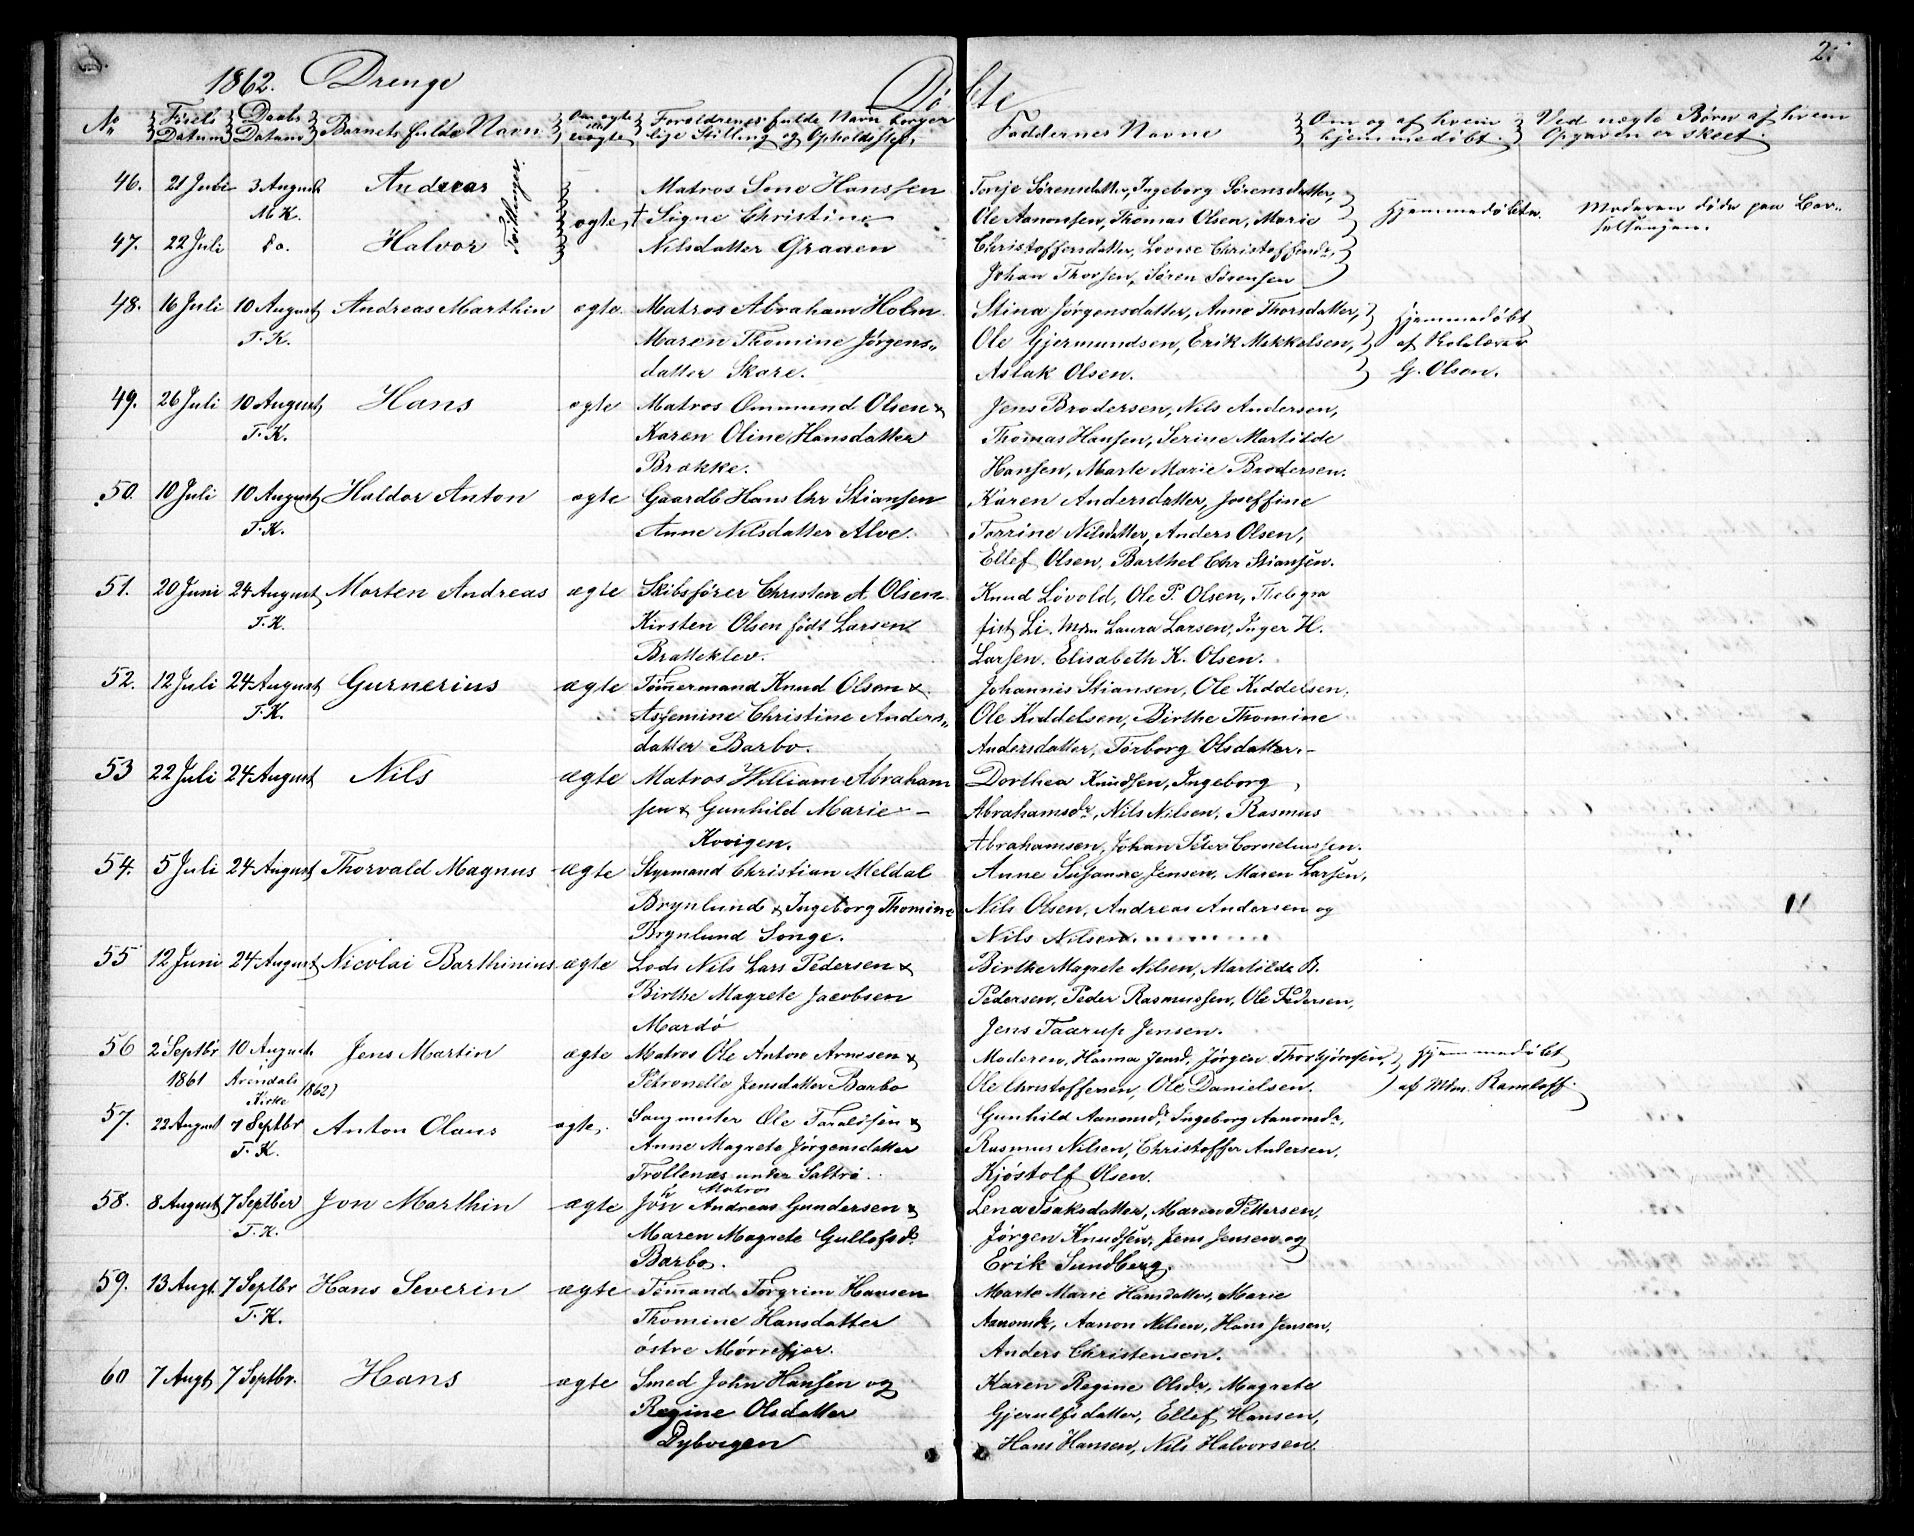 2.
1862. Drenge Døbte
No Føsels Datum Daabs Datum Barnets fulde Navn Om ægte uægte Forældrenes fulde Navn borger lige Stilling og Opholdssted. Faddernes Navne Om og af hvem hjemmedøbt. Ved uægte Børn af hvem Opgaven er skeet.
46. 21 Juli 3 August Andreas Matros Sone Hanssen Tonje Sørensdatter, Ingeborg Sørensdatter,
M K. Tvillinger. ægte, † Signe Christine Ole Aanonsen, Thomas Olsen, Marie Hjemmedøbte. Moderen døde paa Bar-
47. 22 Juli do. Halvor Nilsdatter Graaen Christoffersdatter, Lovise Christoffersdr, selsengen.
Johan Thorsen, Søren Sørensen
48. 16 Juli 10 August Andreas Marthin ægte Matros Abraham Holm Stina Jørgensdatter, Anne Thorsdatter, Hjemmedøbt
T. K. Maren Thomine Jørgens- Ole Gjermundsen, Erik Mikkelsen, af
datter Skare. Aslak Olsen. G. Olsen.
49. 26 Juli 10 August Hans ægte Matros Ommund Olsen & Jens Brodersen, Nils Andersen,
T. K. Karen Oline Hansdatter Thomas Hansen, Serine Martilde
Brække. Hansen, Marte Marie Brodersen.
50. 10 Juli 10 August Haldor Anton ægte Gaardb Hans Chr Stiansen Karen Andersdatter, Joseffine
T. K. Anne Nilsdatter Alve. Torrine Nilsdatter, Anders Olsen,
Ellef Olsen, Barthel Chr Stiansen.
51. 20 Juni 24 August Morten Andreas ægte Skibsfører Christen A. Olsen Knud Løvold, Ole P. Olsen, Thelegra
T. K. Kirsten Olsen født Larsen fist Li. Mdm Laura Larsen, Inger H.
Bratteklev. Larsen. Elisabeth K. Olsen.
52. 12 Juli 24 August Gurnerius ægte Tømermand Knud Olsen & Johannis Stiansen, Ole Kiddelsen,
T. K. Assemine Christine Anders- Ole Kiddelsen, Birthe Thomine
datter Barbo. Andersdatter, Torborg Olsdatter.
53 22 Juli 24 August Nils ægte Matros William Abraham Dorthea Knudsen, Ingeborg
sen & Gunhild Marie Abrahamsdr, Nils Nilsen, Rasmus
Kovigen. Abrahamsen, Johan Peter Corneliussen.
54. 5 Juli 24 August Thorvald Magnus ægte Styrmand Christian Meldal Anne Susanne Jensen, Maren Larsen,
Brynlund & Ingeborg Thomine Nils Olsen, Andreas Andersen og
Brynlund Songe. Nils Nilsen.
55 12 Juni 24 August Nicolai Barthinius ægte Lods Nils Lars Pedersen & Birthe Magrete Nilsen, Martilde B.
Birthe Magrete Jacobsen Pedersen, Peder Rasmussen, Ole Pedersen,
Mardö Jens Taarup Jensen.
56 2 Septbr 10 August Jens Martin ægte Matros Ole Anton Arnesen & Moderen, Hanna Jensd, Jørgen Thorbjørnsen, Hjemmedøbt
1861 Arendals Kirke 1862) Petronelle Jensdatter Barbo Ole Christoffersen, Ole Danielsen. af Mdm. Ramtoff.
57. 22 August 7 Septbr Anton Olaus ægte. Ole Taraldsen & Gunhild Aanonsdr, Ingeborg Aanonsdr,
T. K. Anne Magrete Jørgensdatter Rasmus Nilsen, Christoffer Andersen,
Trollenæs under Saltrø. Kjøstolf Olsen.
58. 8 August 7 Septber Jon Marthin ægte Jon Matros Andreas Gundersen & Lena Isaksdatter, Maren Pettersen,
T. K. Maren Magrete Gullofsdr Jørgen Knudsen, Jens Jensen og
Barbo. Erik Sundberg.
59. 13 Augt. 7 Septbr Hans Severin ægte Tømand Torgrim Hansen Marte Marie Hansdatter, Marie
T. K. Thomine Hansdatter Aanonsdr, Aanon Nilsen, Hans Jensen,
østre Mørrefjær. Anders Christensen.
60 7 Augt 7 Septbr. Hans ægte Smed John Hansen og Karen Regine Olsdr, Magrete
Regine Olsdatter Gjerulfsdatter, Ellef Hansen,
Dybvigen Hans Hansen, Nils Halvorsen.